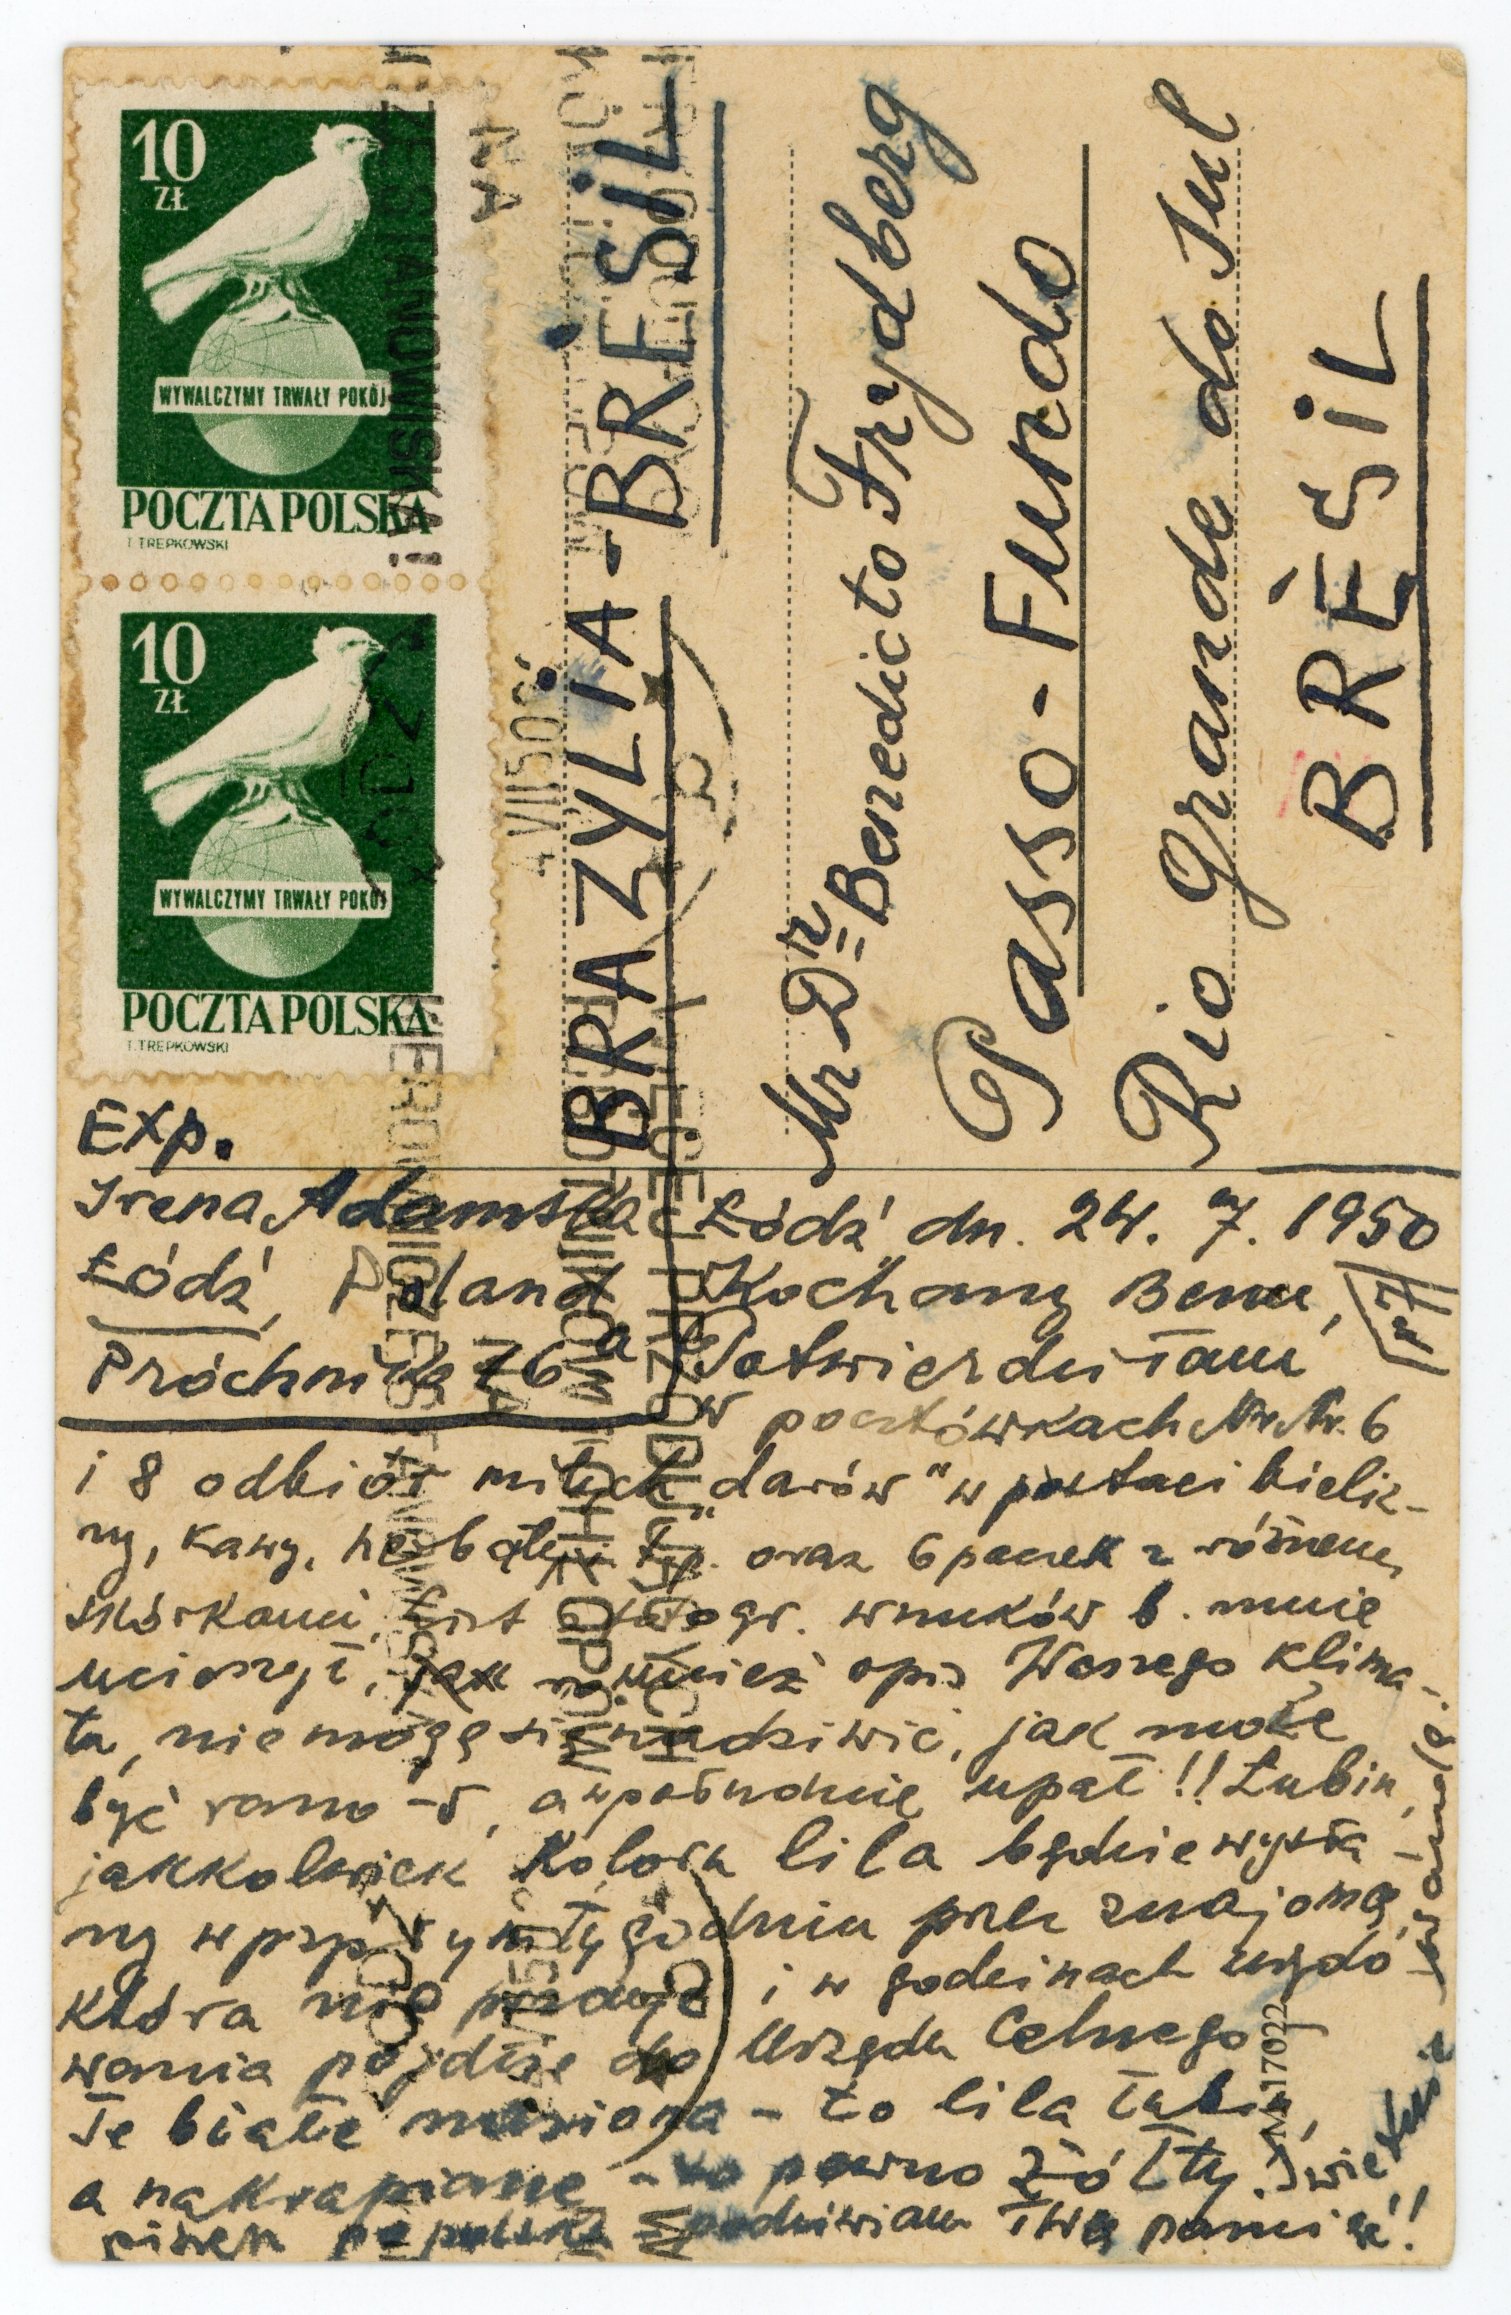 10
ZŁ
WYWALCZYMY TRWAŁY POKÓJ
POCZTA POLSKA
T. TREPKOWSKI
10
ZŁ
WYWALCZYMY TRWAŁY POKÓJ
POCZTA POLSKA
T. TREPKOWSKI
NA
VII 50
BRAZYLIA - BRÉSIL
Mr Dr Benedicto Frydberg
Passo - Fundo
Rio Grande do Sul
BRÉSIL
Exp.
Irena Adamska
Łódź, Poland
Próchnika 16a
Łódź dn. 24. 7. 1950
Kochany Beniu,
Potwierdziłam
w pocztówkach Nr. Nr. 6
i 8 odbiór miłych „darów" w postaci bieliz-
ny, kawy, herbaty i t.p. oraz 6 paczek z różnemi
skórkami. List i fotogr. wnuków b. mnie
ucieszył, jak również opis Waszego klima-
tu, nie mogę się nadziwić, jak może
być rano -5, a w południe upał!! Łubin,
jakkolwiek koloru lila będzie wysła-
ny w przyszłym tygodniu przez znajomą,
która nie pracuje i w godzinach urzędo-
wania pójdzie do Urzędu Celnego
Te białe nasiona - to lila łubin,
a nakrapiane - to pewno żółty. Świetnie
piszesz po polsku podziwiam Twą pamięć!
M-17022